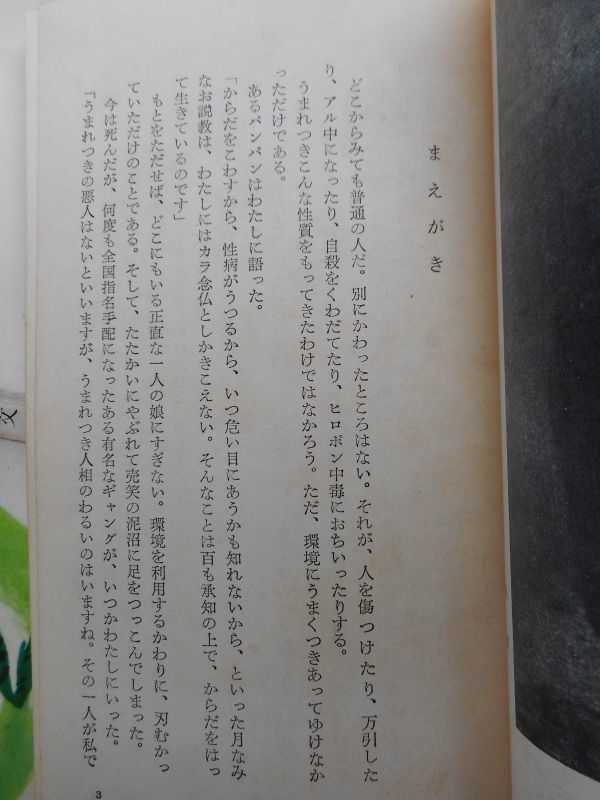 まえがき
どこからみても普通の人だ。別にかわったところはない。それが、人を傷つけたり、万引した
り、アル中になったり、自殺をくわだてたり、ヒロポン中毒におちいったりする。
うまれつきこんな性質をもってきたわけではなかろう。ただ、環境にうまくつきあってゆけなか
っただけである。
あるパンパンはわたしに語った。
「からだをこわすから、性病がうつるから、いつ危い目にあうかも知れないから、といった月なみ
なお説教は、わたしにはカラ念仏としかきこえない。そんなことは百も承知の上で、からだをはっ
て生きているのです」
もとをただせば、どこにもいる正直な一人の娘にすぎない。環境を利用するかわりに、刃むかっ
ていただけのことである。そして、たたかいにやぶれて売笑の泥沼に足をつっこんでしまった。
今は死んだが、何度も全国指名手配になったある有名なギャングが、いつかわたしにいった。
「うまれつきの悪人はないといいますが、うまれつき人相のわるいのはいますね。その一人が私で
3
文